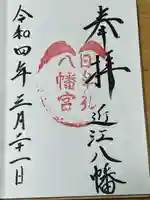 奉拝
近江八幡
日牟礼
八幡宮
令和四年三月二十一日